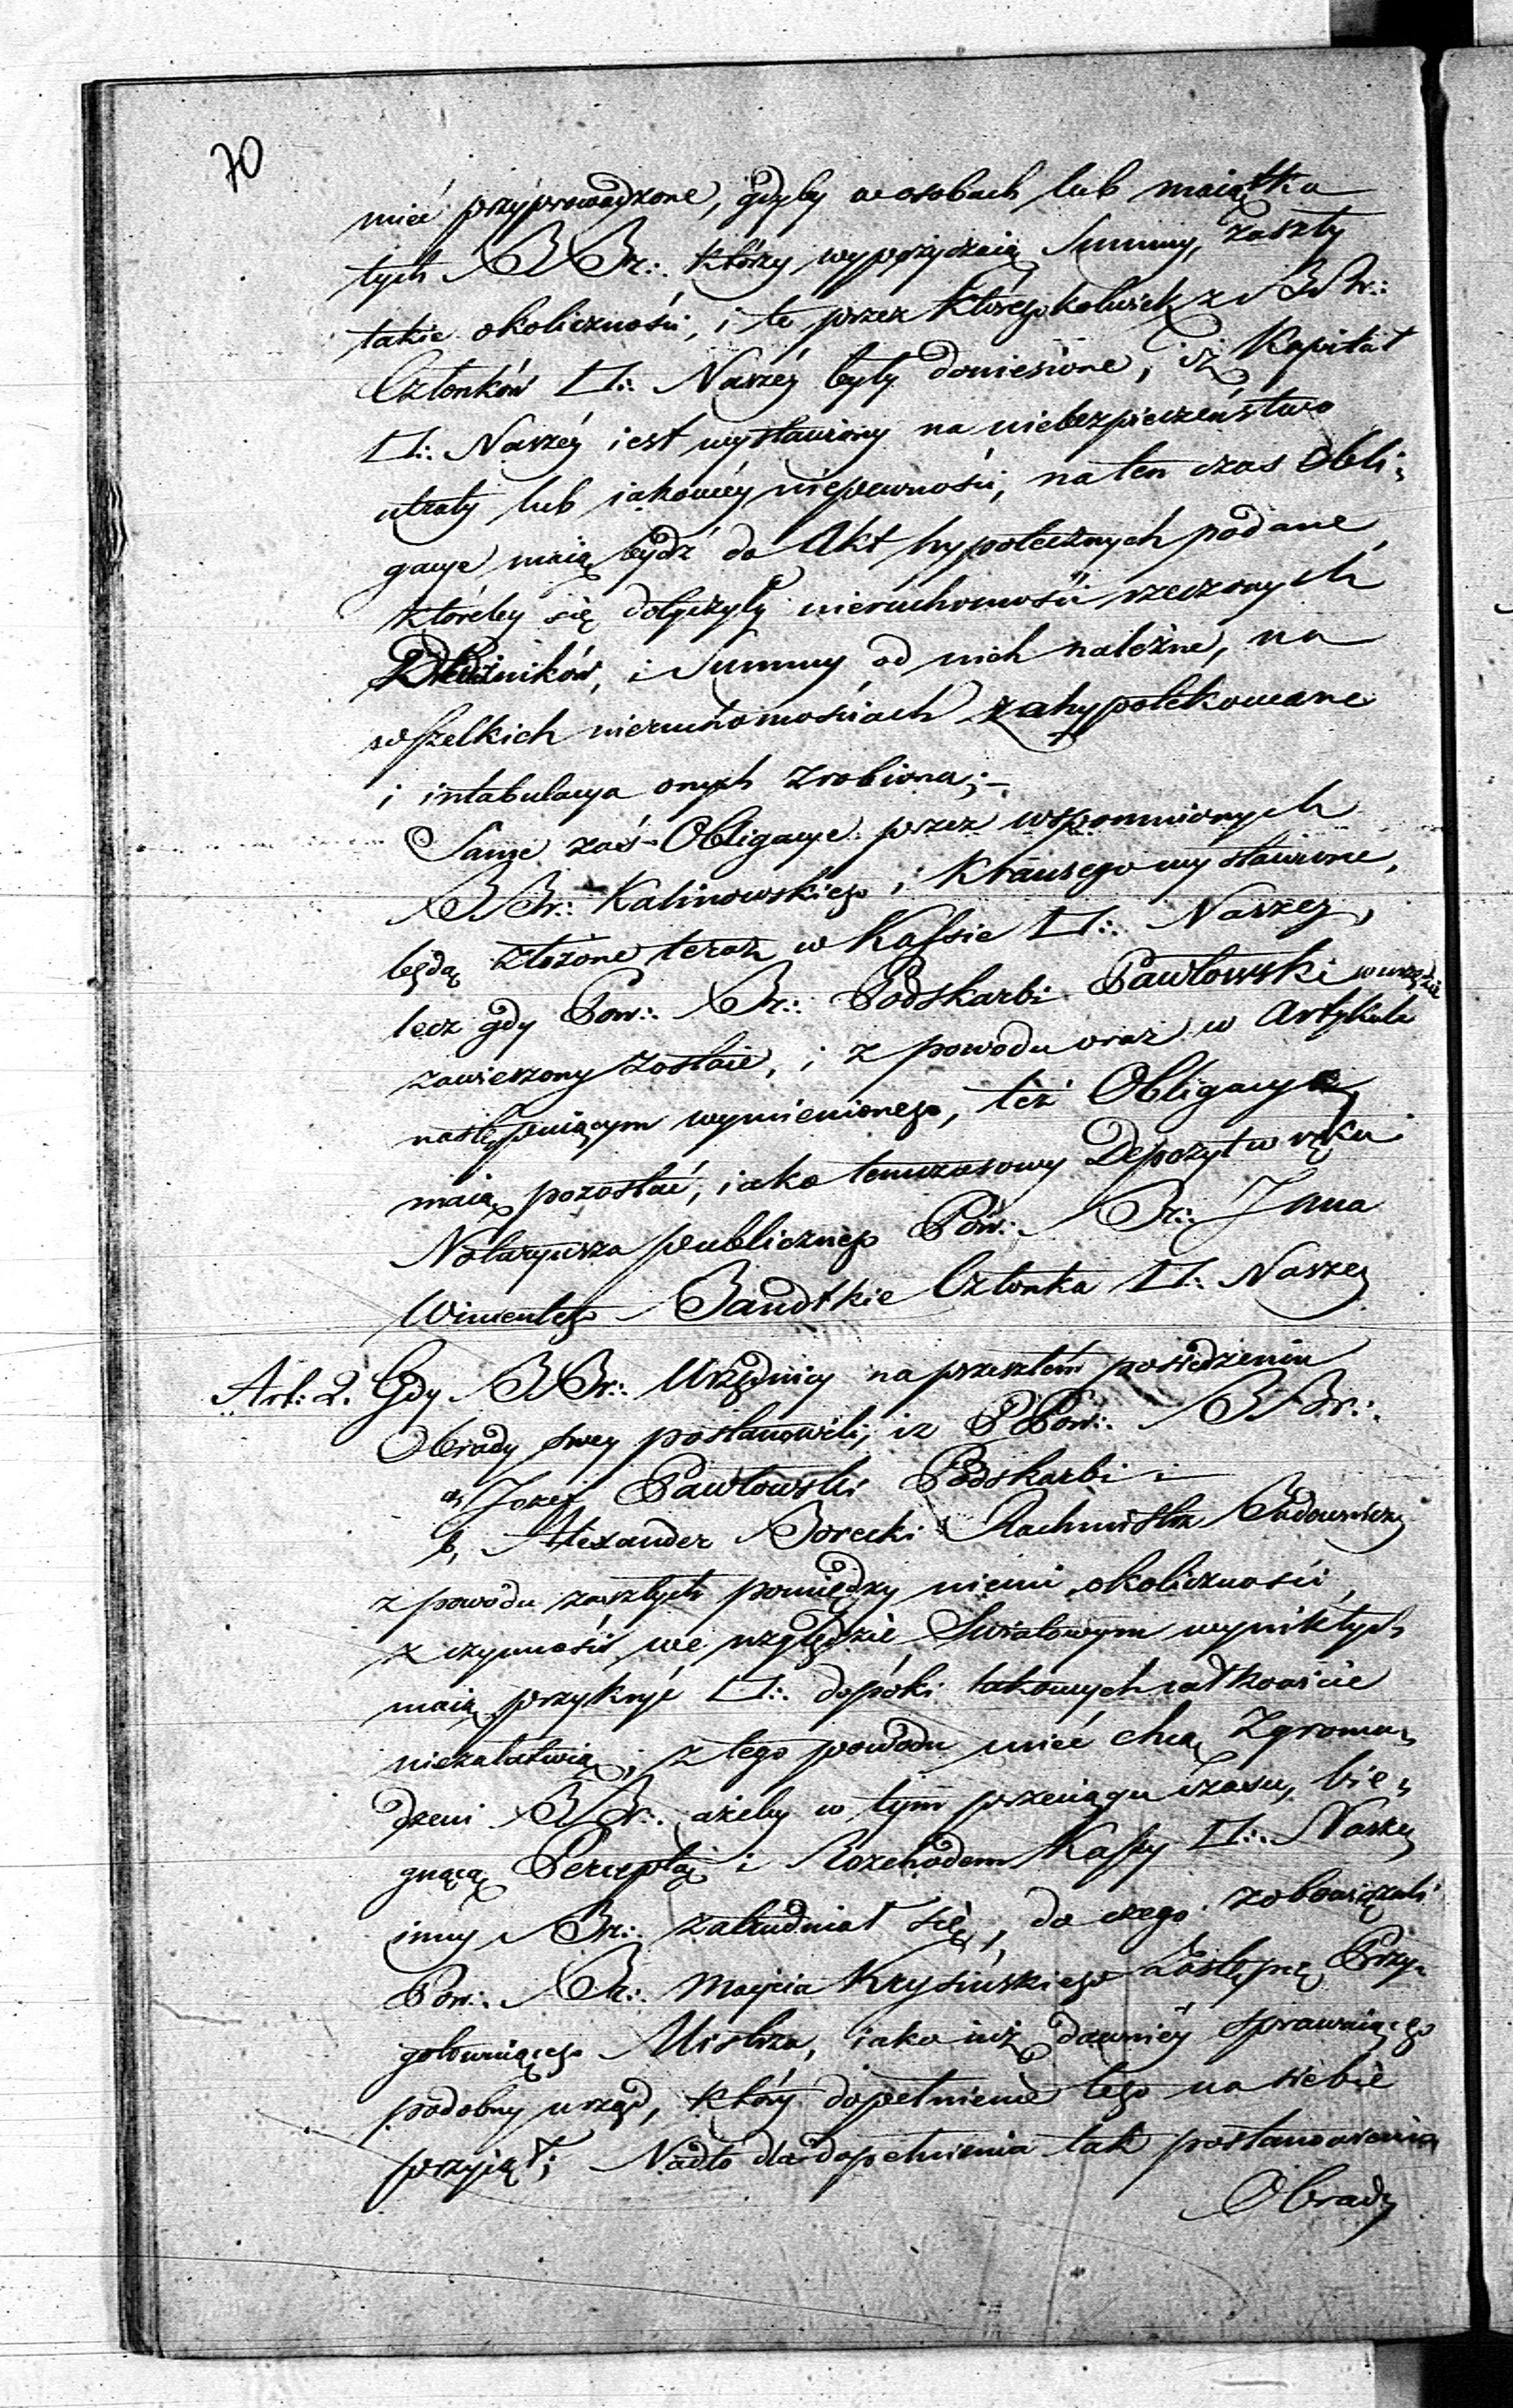 70
mieć przyprowadzone, gdyby w osobach lub maiątku
tych BBr∴ którzy wypożyczaią Summy, zaszły
takie okoliczności, i te przez któregokolwiek z BBr∴
Członków □∴ Naszéy były doniesione, iż Kapitał
□∴ Naszéy iest wystawiony na niebezpieczeństwo
utraty lub iakowéy niepewności, na ten czas Obli„
gacye maią bydź do Akt hypotecznych podane,
któreby się dotyczyły nieruchomości rzeczonych
Dłużników, i Summy od nich należne, na
wszelkich nieruchomościach zahypotekowane
i intabulacya onych zrobiona;–
Same zaś Obligacye przez wspomnionych
BBr∴ Kalinowskiego i Krausego wystawione,
będą złożone teraz w Kassie □∴ Naszey,
lecz gdy Pow∴ Br∴ Podskarbi Pawłowski w urzędzie
zawieszony zostaie, i z powodu oraz w Artykule
następuiącym wymienionego, też Obligacye
maią pozostać, iako temczasowy Depozyt w ręku
Notaryusza publicznego Pow∴ Br∴ Jana
Wincentego Bandtkie Członka □∴ Naszey
Art: 2. Gdy BBr∴ Urzędnicy na przeszłem posiedzeniu
Obrady swey postanowili, iż PPow∴ BBr∴
a, Jozef Pawłowski Podskarbi i
b, Alexander Borecki Rachmistrz Budowniczy
z powodu zaszłych pomiędzy niemi okoliczności,
z czynności we względzie Swiatowym wynikłych
maią przykryć □∴ dopóki takowych całkowicie
niezałatwią; z tego powodu mieć chcą Zgroma„
dzeni BBr∴ ażeby w tym przeciągu czasu, bie„
gnącą Perceptą i Rozchodem Kassy □∴ Naszey
inny Br∴ zatrudniał się, do czego zobowiązali
Pow∴ Br∴ Macieja Krysińskiego Zastępcę Przy„
gotowuiącego Mistrza, iako iuż dawniéy sprawuiącego
podobny urząd, który dopełnienie tego na siebie
przyiął; Nadto dla dopełnienia tak postanowienia
Obrady